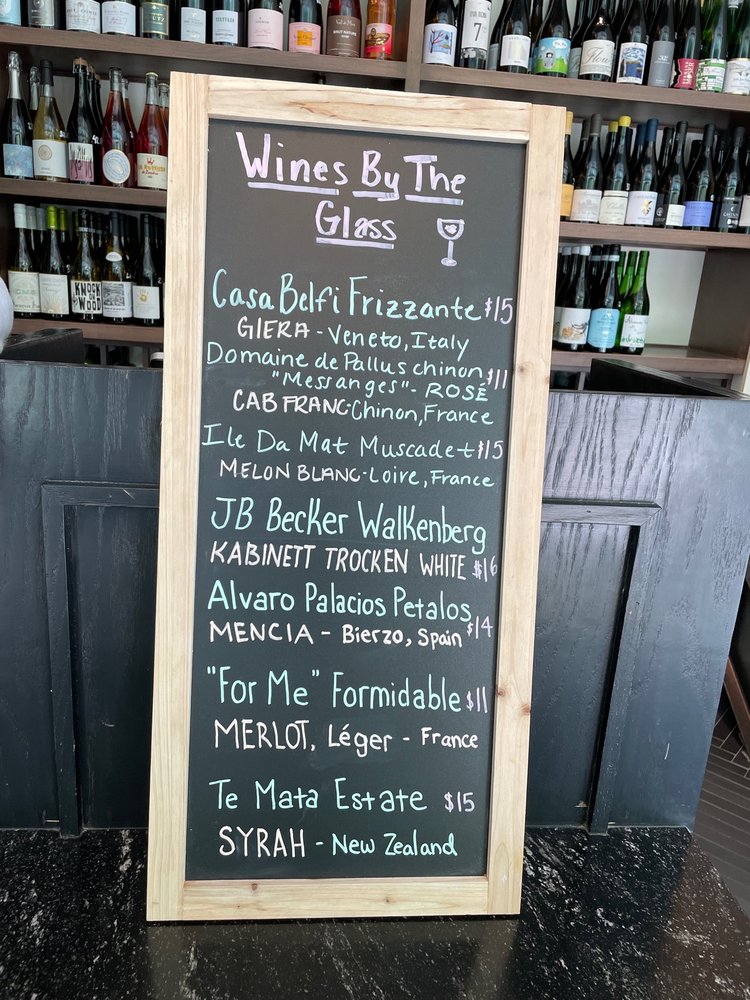 Wines By The
Glass
Casa Belfi Frizzante $15
GIERA - Veneto, Italy
Domaine de Pallus chinon
"Messanges" - ROSÉ $11
CAB FRANC - Chinon, France
Ile Da Mat Muscadet $15
MELON BLANC - Loire, France
JB Becker Walkenberg
KABINETT TROCKEN WHITE $16
Alvaro Palacios Petalos
MENCIA - Bierzo, Spain $14
"For Me" Formidable $11
MERLOT, Léger - France
Te Mata Estate $15
SYRAH - New Zealand
KNOCK
WOOD
7